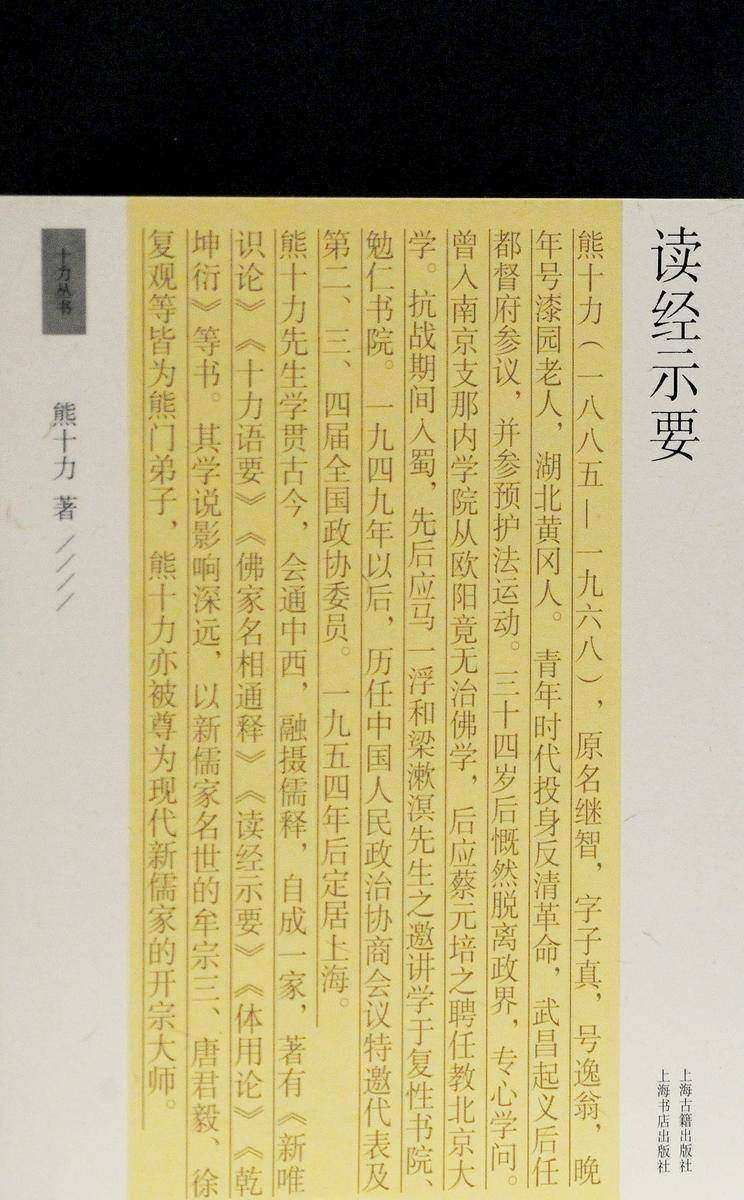 读经示要
上海古籍出版社
上海书店出版社
熊十力（一八八五—一九六八），原名继智，字子真，号逸翁，晚
年号漆园老人，湖北黄冈人。青年时代投身反清革命，武昌起义后任
都督府参议，并参预护法运动。三十四岁后慨然脱离政界，专心学问。
曾入南京支那内学院从欧阳竟无治佛学，后应蔡元培之聘任教北京大
学。抗战期间入蜀，先后应马一浮和梁漱溟先生之邀讲学于复性书院、
勉仁书院。一九四九年以后，历任中国人民政治协商会议特邀代表及
第二、三、四届全国政协委员。一九五四年后定居上海。
熊十力先生学贯古今，会通中西，融摄儒释，自成一家，著有《新唯
识论》《十力语要》《佛家名相通释》《读经示要》《体用论》《乾
坤衍》等书。其学说影响深远，以新儒家名世的牟宗三、唐君毅、徐
复观等皆为熊门弟子，熊十力亦被尊为现代新儒家的开宗大师。
十力丛书
熊十力 著////